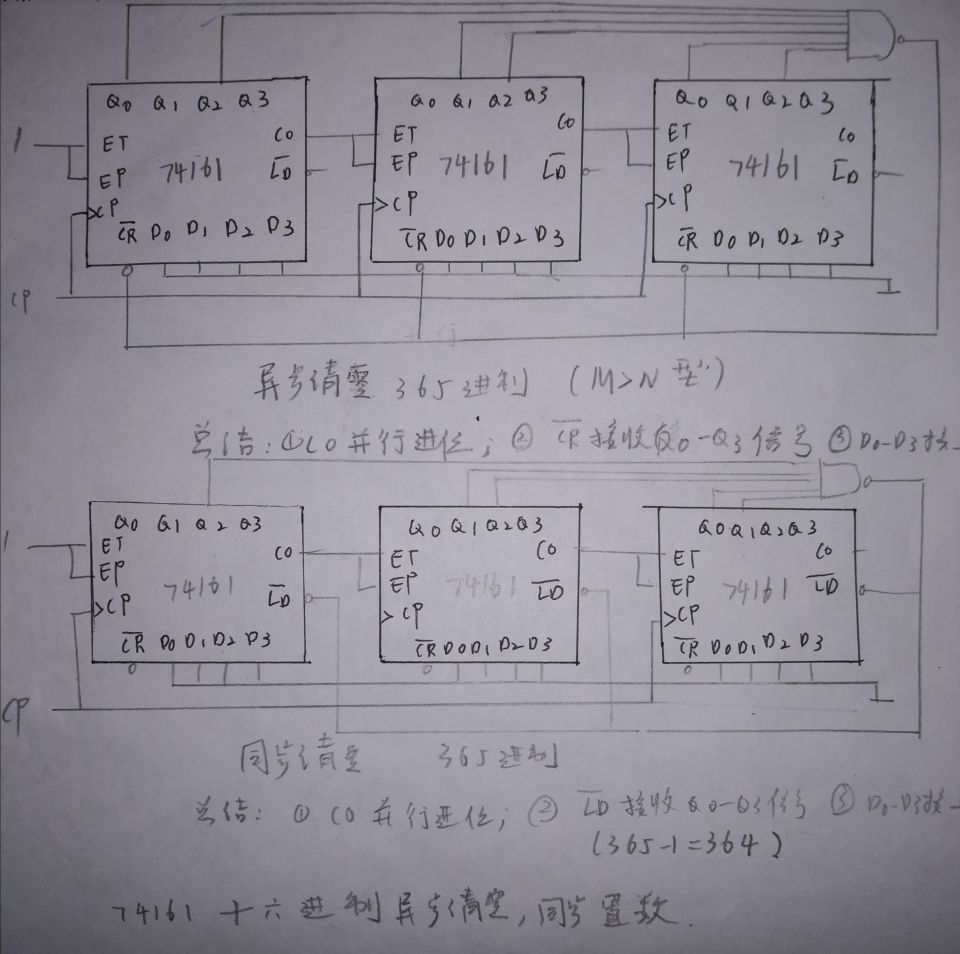 Q0 Q1 Q2 Q3 Q0 Q1 Q2 Q3 Q0 Q1 Q2 Q3
1 ET CO ET CO ET CO
EP 74161 L̅D̅ EP 74161 L̅D̅ EP 74161 L̅D̅
>CP >CP >CP
C̅R̅ D0 D1 D2 D3 C̅R̅ D0 D1 D2 D3 C̅R̅ D0 D1 D2 D3
CP
异步清零 365进制 (M>N型)
总结:①CO并行进位;② C̅R̅接收Q0-Q3信号 ③D0-D3接
Q0 Q1 Q2 Q3 Q0 Q1 Q2 Q3 Q0 Q1 Q2 Q3
1 ET CO ET CO ET CO
EP 74161 L̅D̅ EP 74161 L̅D̅ EP 74161 L̅D̅
>CP >CP >CP
C̅R̅ D0 D1 D2 D3 C̅R̅ D0 D1 D2 D3 C̅R̅ D0 D1 D2 D3
CP
同步清零 365进制
总结: ① CO并行进位;② L̅D̅接收Q0-Q3信号 ③ D0-D3接
(365-1=364)
74161 十六进制异步清零,同步置数.